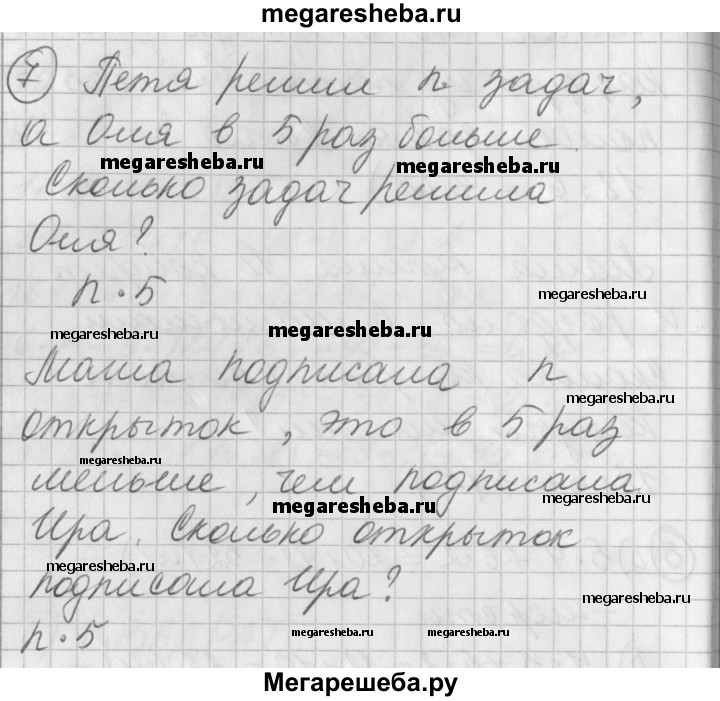 megaresheba.ru
7 Петя решил n задач,
а Оля в 5 раз больше.
megaresheba.ru megaresheba.ru
Сколько задач решила
Оля?
n · 5
megaresheba.ru
megaresheba.ru megaresheba.ru
Маша подписала n
megaresheba.ru
открыток, это в 5 раз
megaresheba.ru
меньше, чем подписала
megaresheba.ru megaresheba.ru
Ира. Сколько открыток
megaresheba.ru
подписала Ира?
megaresheba.ru
n · 5
megaresheba.ru megaresheba.ru
Мегарешеба.ру